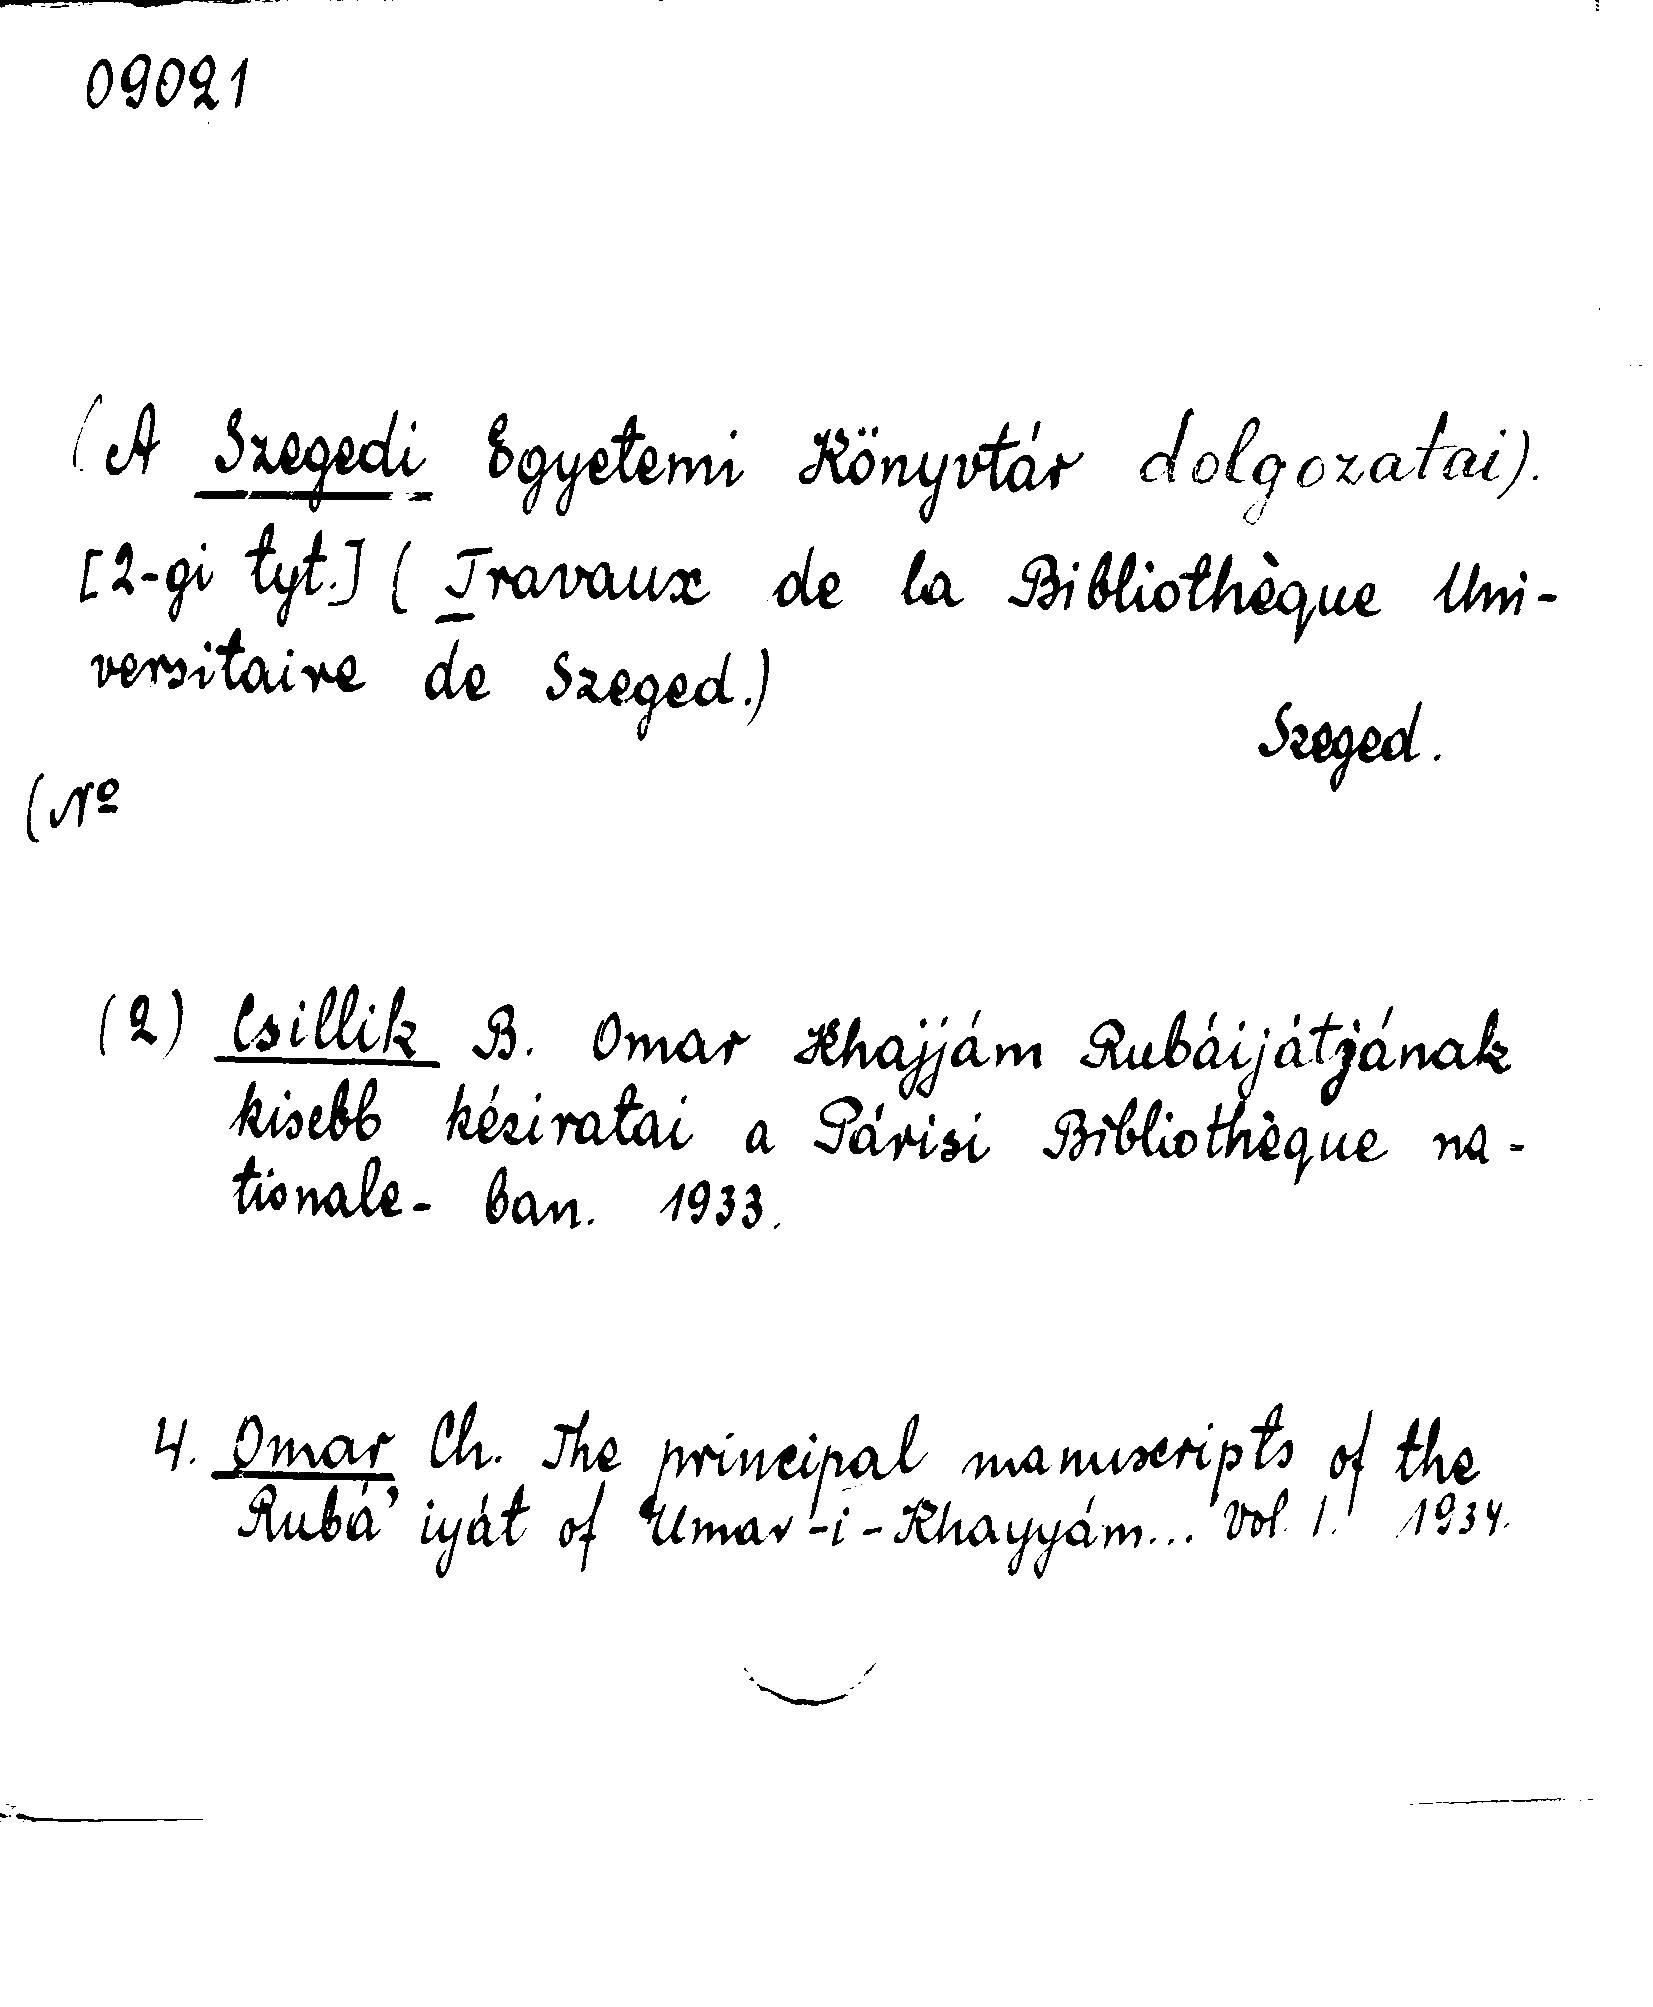 09021
(A Szegedi Egyetemi Könyvtár dolgozatai).
[2-gi tyt.] (Travaux de la Bibliothèque Uni-
versitaire de Szeged.)
Szeged.
(Nº
(2) Csillik B. Omar Khajjám Rubáijátjának
kisebb kéziratai a Párisi Bibliothèque na-
tionale-ban. 1933.
4. Omar Ch. The principal manuscripts of the
Rubá'iyát of Umar-i-Khayyám... Vol. 1. 1934.